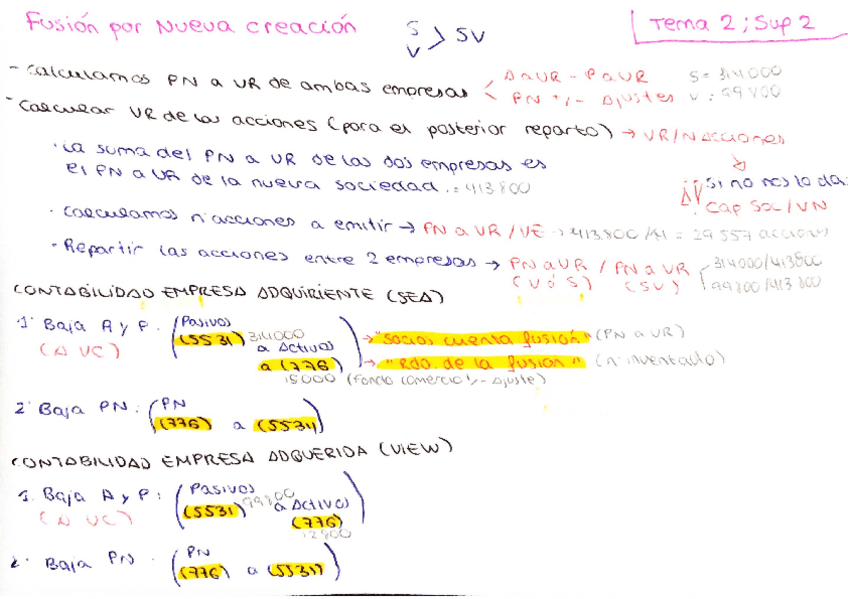 Fusión por Nueva creación S V > SV Tema 2; Sup 2
- Calculamos PN a VR de ambas empresas < A a VR - P a VR S = 314000
PN +/- Ajustes V: 99800
- Calcular VR de las acciones (para el posterior reparto) → VR/Nacciones
· La suma del PN a VR de las dos empresas es
el PN a VR de la nueva sociedad. = 413800
Si no nos lo da:
Cap Soc / VN
· Calculamos n'acciones a emitir → PN a VR / VE → 413.800/14 = 29557 acciones
· Repartir las acciones entre 2 empresas → PN a VR / PN a VR 314000/413800
(V ó S) (SV) 99800/413800
CONTABILIDAD EMPRESA ADQUIRIENTE (SEA)
1. Baja A y P: (Pasivos
(A VC) (5531) 314000 → "socios cuenta fusión" (PN a VR)
a Activos
a (776) → "Rdo. de la fusion" (n. inventado)
15000 (fondo comercio +/- Ajuste)
2. Baja PN: (PN
(776) a (5531)
CONTABILIDAD EMPRESA ADQUERIDA (VIEW)
1. Baja A y P: (Pasivos
(A VC) (5531) 99800 a Activos
(776)
12800
2. Baja PN: (PN
(776) a (5531)